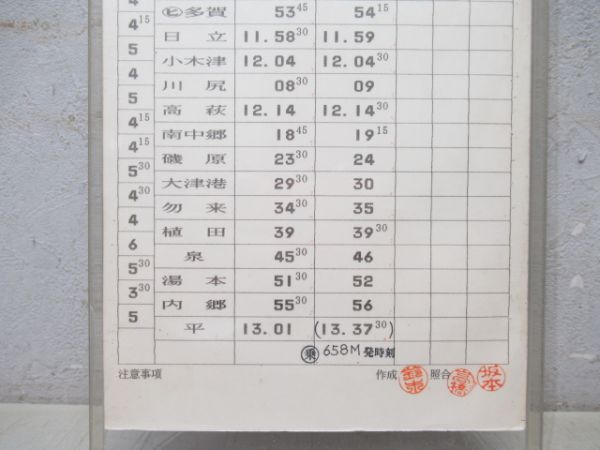 4
4¹⁵ ㋪多賀 53⁴⁵ 54¹⁵
4¹⁵ 日立 11.58³⁰ 11.59
5 小木津 12.04 12.04³⁰
4 川尻 08³⁰ 09
5 高萩 12.14 12.14³⁰
4¹⁵ 南中郷 18⁴⁵ 19¹⁵
4¹⁵ 磯原 23³⁰ 24
5³⁰ 大津港 29³⁰ 30
4³⁰ 勿来 34³⁰ 35
4 植田 39 39³⁰
6 泉 45³⁰ 46
5³⁰ 湯本 51³⁰ 52
3³⁰ 内郷 55³⁰ 56
5 平 13.01 (13.37³⁰)
乗 658M 発時刻
注意事項 作成 照合 高橋 坂本